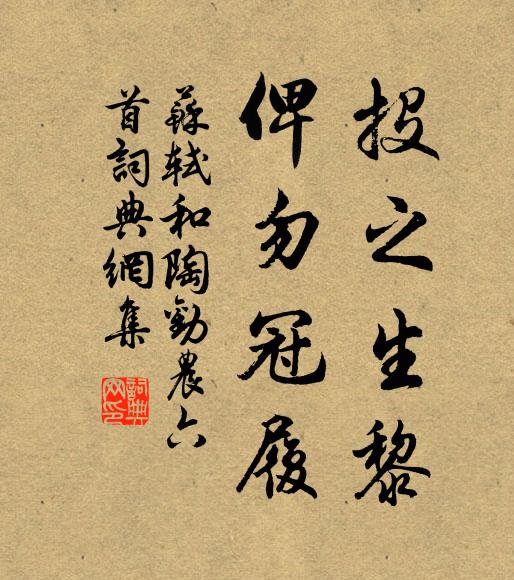 投之生黎
俾勿冠履
蘇軾和陶勸農六
首詞典網集
詞典
网印